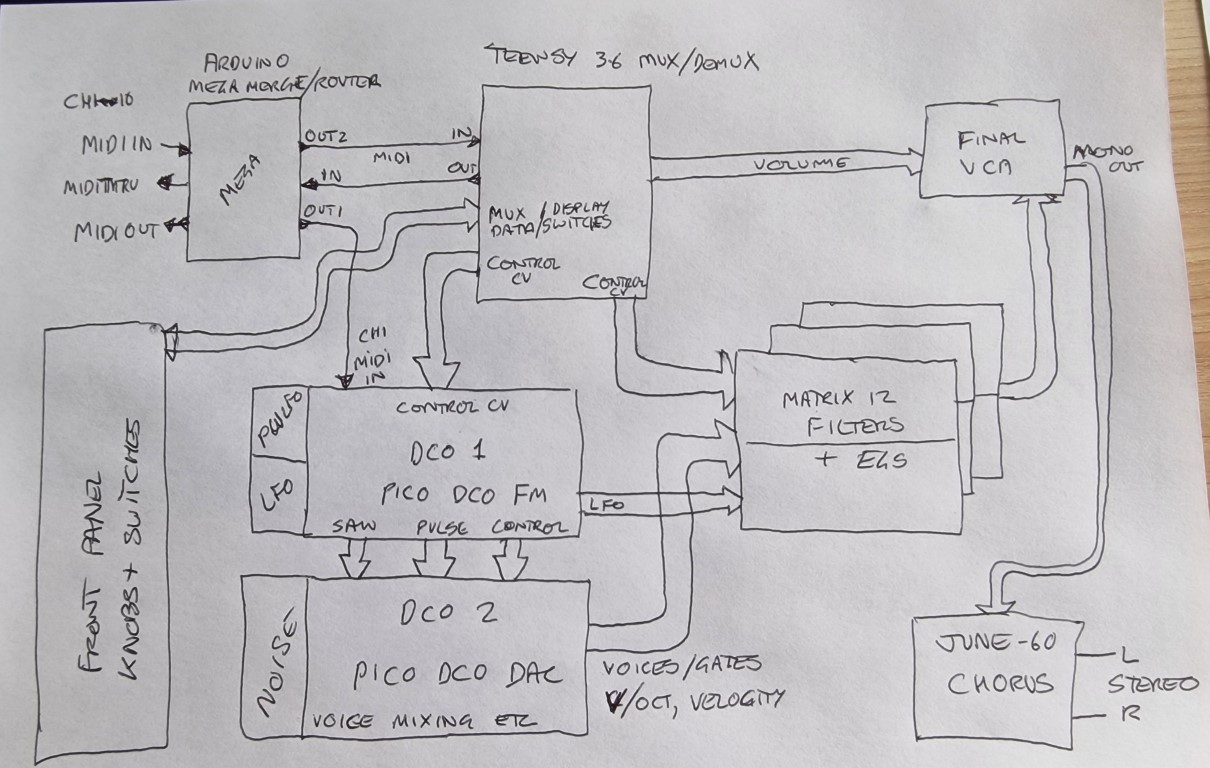 ARDUINO
MEGA MERGE/ROUTER
MIDI IN
MIDITHRU
MIDI OUT
MEGA
OUT2
IN
OUT1
MIDI
TEENSY 3.6 MUX/DEMUX
IN
OUT
MUX / DISPLAY
DATA/SWITCHES
CONTROL
CV
CONTROL
CV
VOLUME
FINAL
VCA
MONO
OUT
FRONT PANEL
KNOBS + SWITCHES
CH1
MIDI
IN
PWLFO
LFO
CONTROL CV
DCO 1
PICO DCO FM
SAW PULSE CONTROL
LFO
MATRIX 12
FILTERS
+ EGS
NOISE
DCO 2
PICO DCO DAC
VOICE MIXING ETC
VOICES/GATES
V/OCT, VELOCITY
JUNE-60
CHORUS
L
STEREO
R